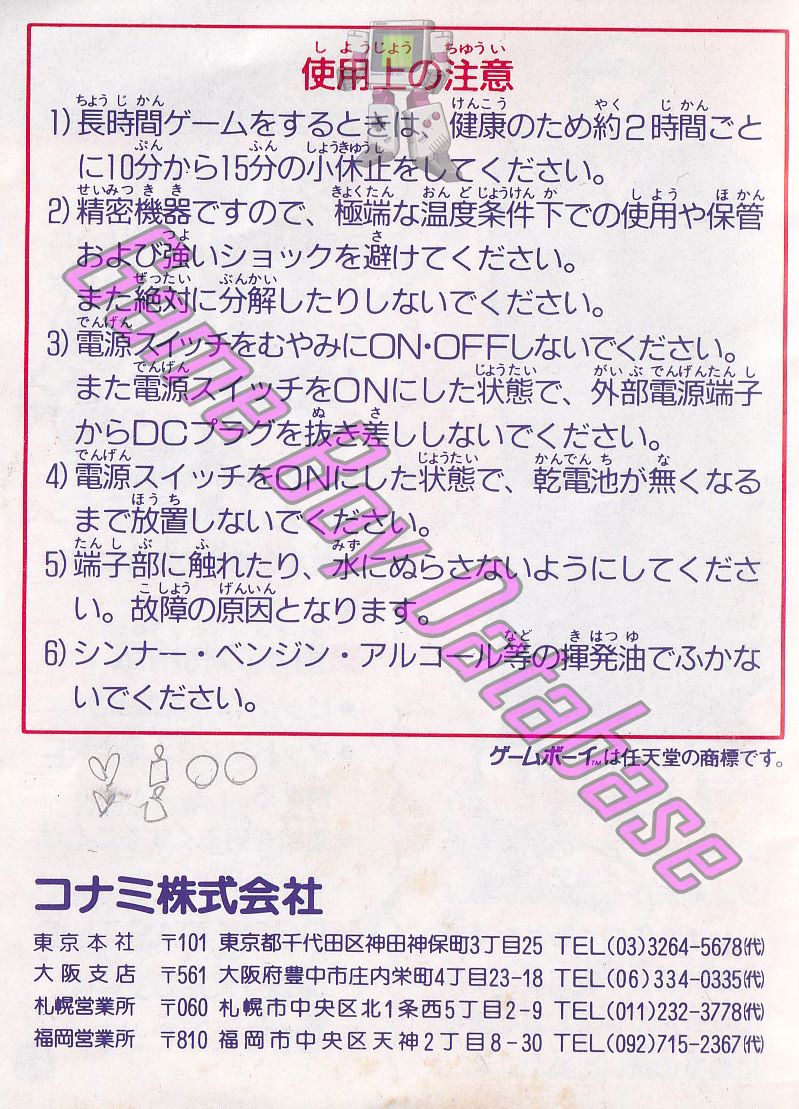 使用上の注意
1) 長時間ゲームをするときは、健康のため約2時間ごと
に10分から15分の小休止をしてください。
2) 精密機器ですので、極端な温度条件下での使用や保管
および強いショックを避けてください。
また絶対に分解したりしないでください。
3) 電源スイッチをむやみにON・OFFしないでください。
また電源スイッチをONにした状態で、外部電源端子
からDCプラグを抜き差ししないでください。
4) 電源スイッチをONにした状態で、乾電池が無くなる
まで放置しないでください。
5) 端子部に触れたり、水にぬらさないようにしてくださ
い。故障の原因となります。
6) シンナー・ベンジン・アルコール等の揮発油でふかな
いでください。
ゲームボーイ™は任天堂の商標です。
コナミ株式会社
東京本社 〒101 東京都千代田区神田神保町3丁目25 TEL(03)3264-5678(代)
大阪支店 〒561 大阪府豊中市庄内栄町4丁目23-18 TEL(06)334-0335(代)
札幌営業所 〒060 札幌市中央区北1条西5丁目2-9 TEL(011)232-3778(代)
福岡営業所 〒810 福岡市中央区天神2丁目8-30 TEL(092)715-2367(代)
Game Boy Database